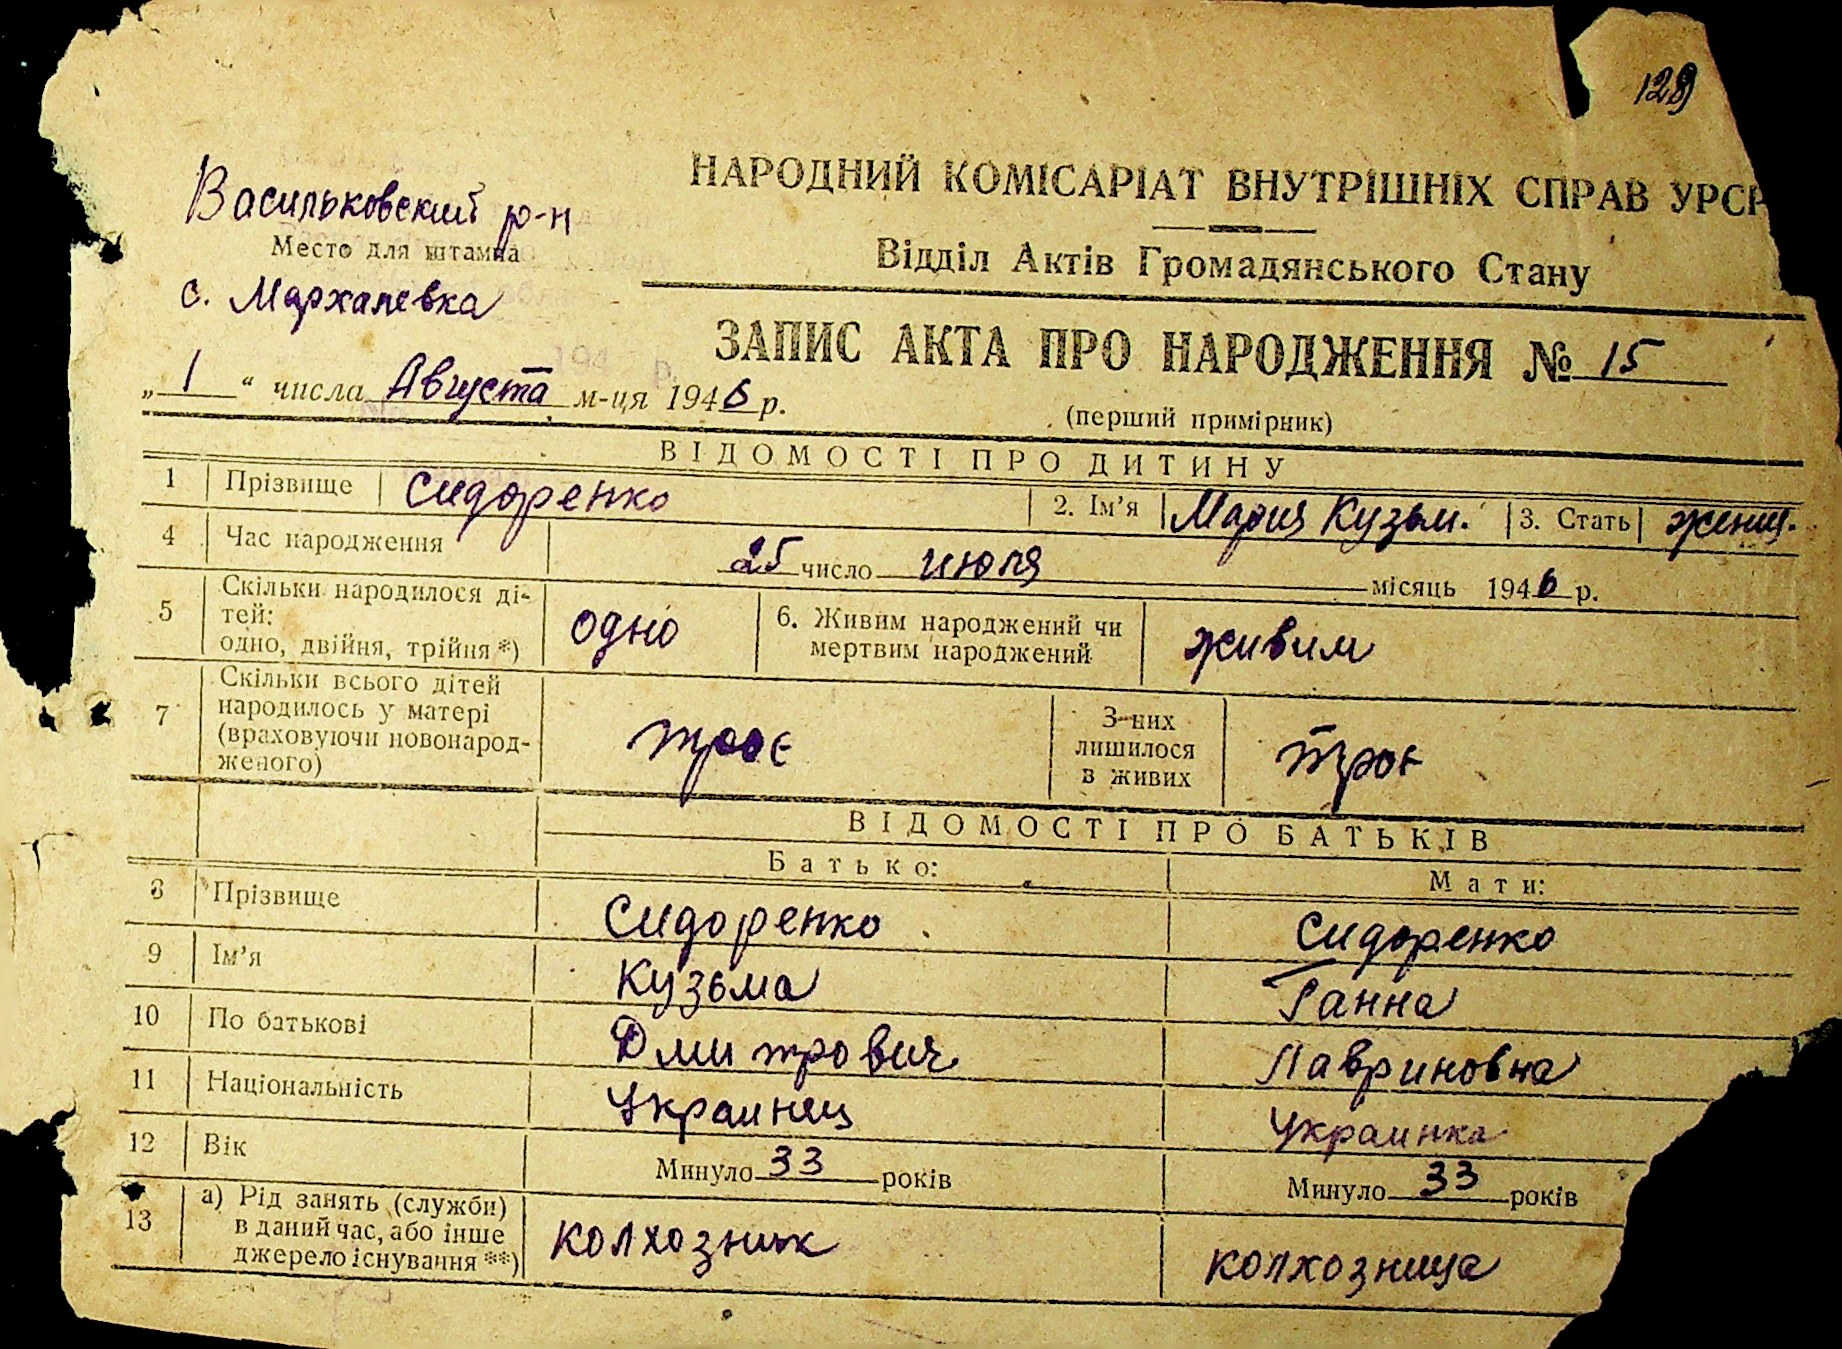 129
Васильковский р-н
Место для штампа
с. Мархалевка
„ 1 “ числа Августа м-ця 1946 р.
НАРОДНИЙ КОМІСАРІАТ ВНУТРІШНІХ СПРАВ УРСР
Відділ Актів Громадянського Стану
ЗАПИС АКТА ПРО НАРОДЖЕННЯ № 15
(перший примірник)
ВІДОМОСТІ ПРО ДИТИНУ
1 Прізвище Сидоренко 2. Ім'я Мария Кузьм. 3. Стать женщ.
4 Час народження 25 число июля місяць 1946 р.
5 Скільки народилося ді-
тей:
одно, двійня, трійня *) одно 6. Живим народжений чи
мертвим народжений живим
7 Скільки всього дітей
народилось у матері
(враховуючи новонарод-
женого) троє З них
лишилося
в живих троє
ВІДОМОСТІ ПРО БАТЬКІВ
Батько: Мати:
8 Прізвище Сидоренко Сидоренко
9 Ім'я Кузьма Ганна
10 По батькові Дмитрович Лавриновна
11 Національність Украинец Украинка
12 Вік Минуло 33 років Минуло 33 років
13 а) Рід занять (служби)
в даний час, або інше
джерело існування **) колхозник колхозница